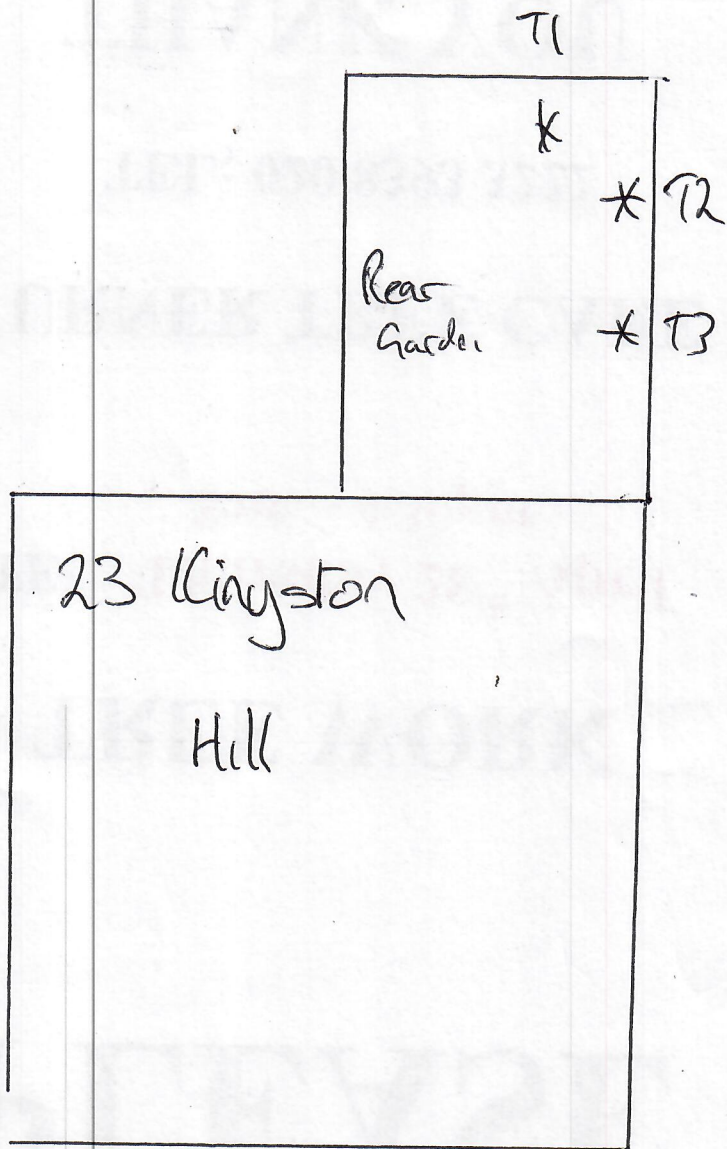 T1
T2
Rear
Garden
T3
23 Kingston
Hill